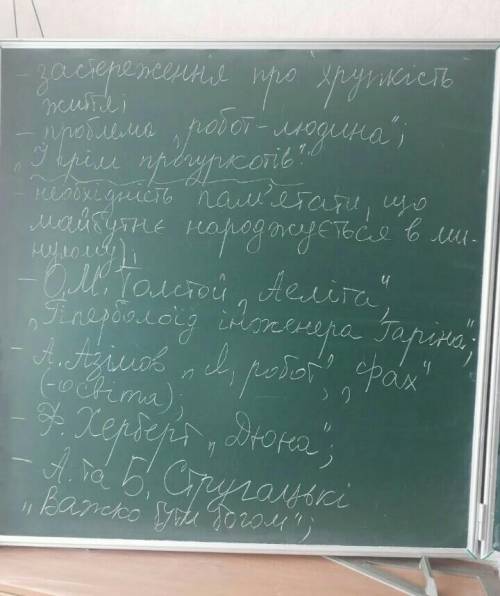 - застереження про крихкість
життя;
- проблема „робот-людина";
„І грім прогуркотів".
- необхідність пам'ятати, що
майбутнє народжується в ми-
нулому);
- О.М. Толстой „Аеліта",
„Гіперболоїд інженера Гаріна";
- А. Азімов „Я, робот", „Фах"
(-освіта);
- Ф. Херберт „Дюна";
- А. та Б. Стругацькі
„Важко бути богом";